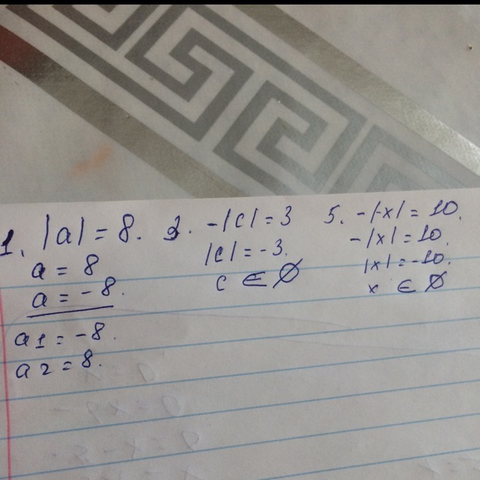 1. |a| = 8.
a = 8
a = -8.
a1 = -8.
a2 = 8.
3. -|c| = 3
|c| = -3.
c ∈ ∅
5. -|-x| = 10.
-|x| = 10.
|x| = -10.
x ∈ ∅